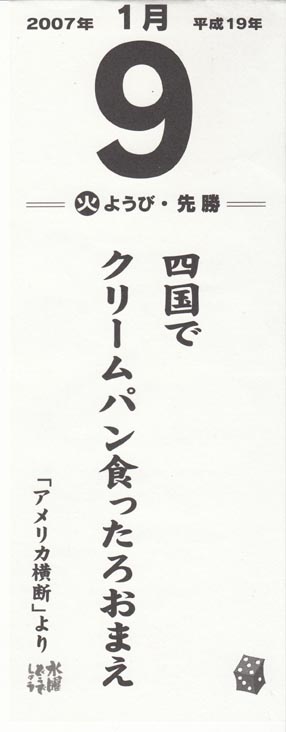 2007年 1月 平成19年
9
火ようび・先勝
四国で
クリームパン食ったろおまえ
「アメリカ横断」より
水曜
どうで
しょう